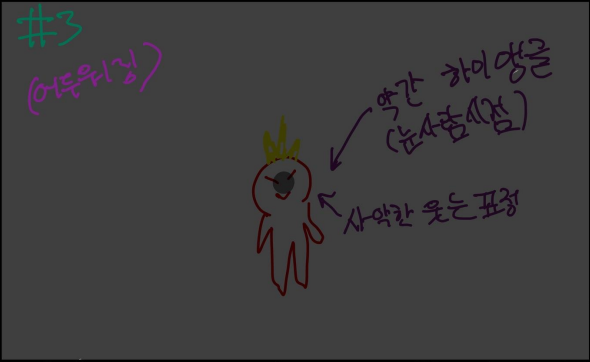 #3
(어두워짐)
약간 하이앵글
(눈사람시점)
사악한 웃는 표정